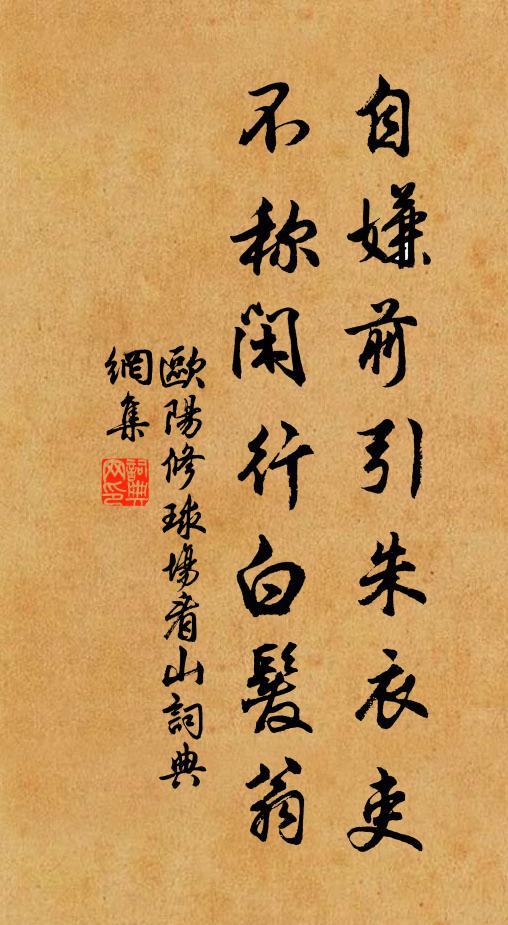 自嫌前引朱衣吏
不称閑行白髮翁
歐陽修球場看山詞典
網集
詞典
网印